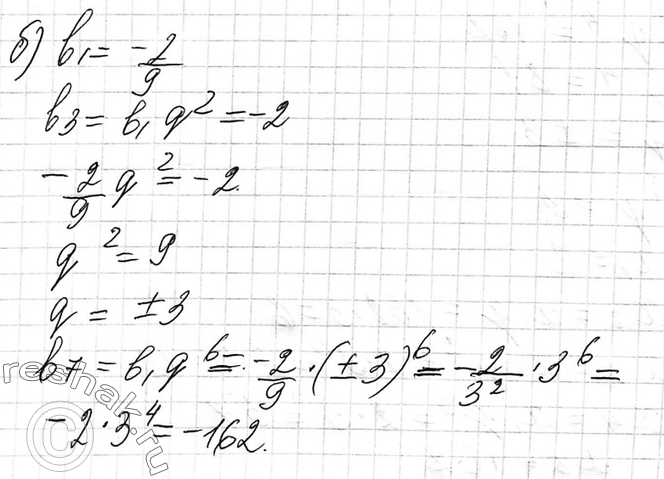 б) b₁ = -2/9
b₃ = b₁ q² = -2
-2/9 q² = -2
q² = 9
q = ±3
b₇ = b₁ q⁶ = -2/9 · (±3)⁶ = -2/3² · 3⁶ =
-2 · 3⁴ = -162.
reshak.ru